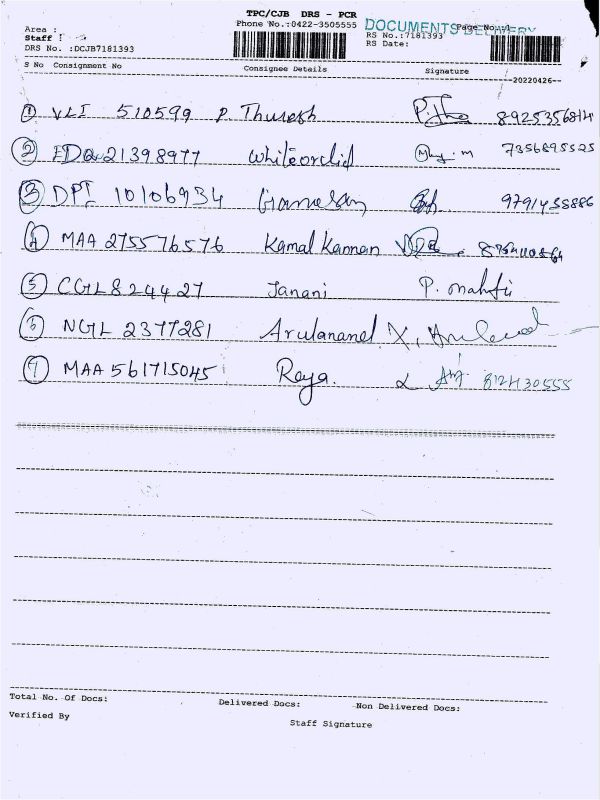 TPC/CJB DRS - PCR
Phone No.:0422-3505555
DOCUMENTS DELIVERY
Page No.
Area :
Staff :
DRS No. :DCJB7181393
RS No.:7181393
RS Date:
S No Consignment No Consignee Details Signature
--20220426--
1 VLI 510599 P. Thuresh
2 EDQ 21398977 Whiteorchid 7356895525
3 DPI 10106934
4 MAA 275576576 Kamal Kannan
5 CGL 824427 Janani
6 NGL 2377281 Arulanand
7 MAA 561715045 Raya.
Total No. Of Docs: Delivered Docs: Non Delivered Docs:
Verified By
Staff Signature